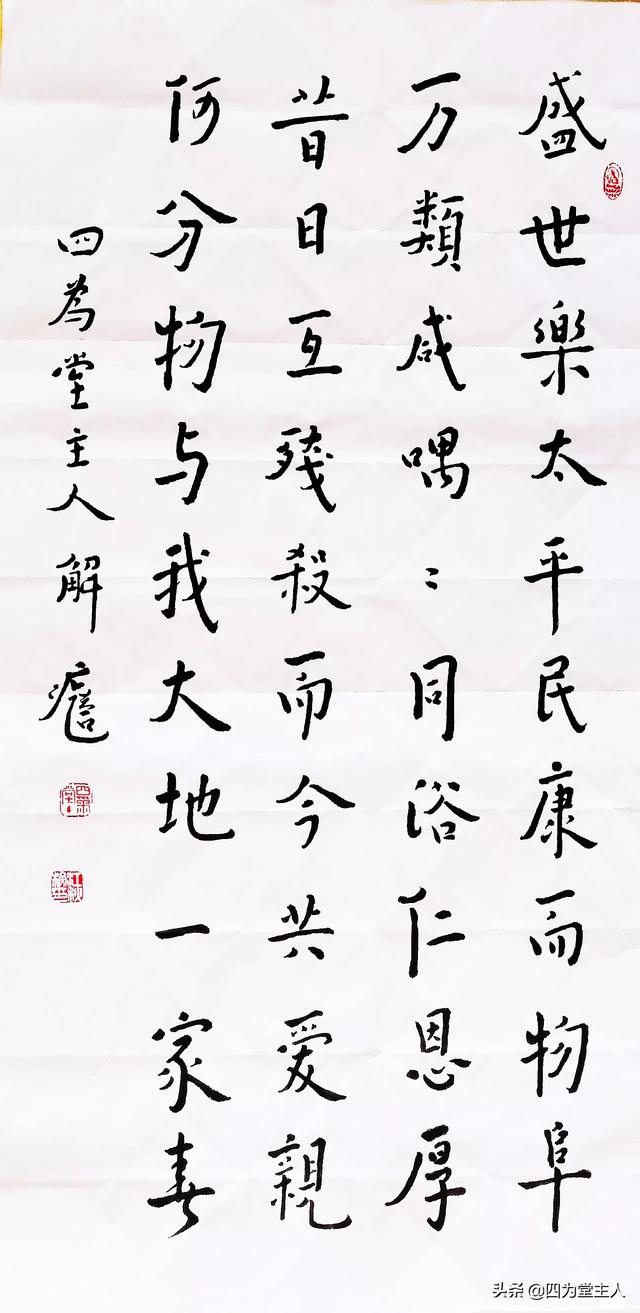 盛世樂太平民康而物阜
万類咸喁〻同俗仁恩厚
昔日互殘殺而今共爱親
何分物与我大地一家春
四為堂主人解
头条 @四为堂主人